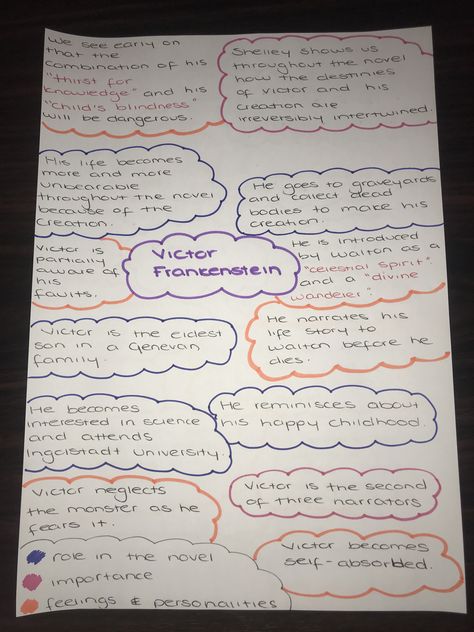 We see early on
that the
combination of his
"thirst for
knowledge" and his
"child's blindness"
will be dangerous.
Shelley shows us
throughout the novel
how the destinies
of Victor and his
creation are
irreversibly intertwined.
His life becomes
more and more
unbearable
throughout the novel
because of the
creation.
He goes to graveyards
and collect dead
bodies to make his
creation.
Victor is
partially
aware of
his
faults.
Victor
Frankenstein
He is introduced
by Walton as a
"celestial spirit"
and a "divine
wanderer".
Victor is the eldest
son in a Genevan
family.
He narrates his
life story to
Walton before he
dies.
He becomes
interested in science
and attends
Ingolstadt University.
He reminisces about
his happy childhood.
Victor neglects
the monster as he
fears it.
Victor is the second
of three narrators
role in the novel
importance
feelings & personalities
Victor becomes
self-absorbed.